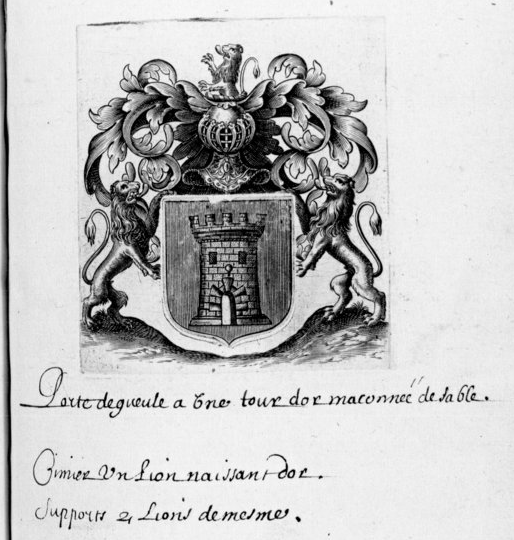 Porte de gueule a Une tour dor maconneé de sable.
Cimier Un Lion naissant dor.
Supports 2 Lions de mesme.